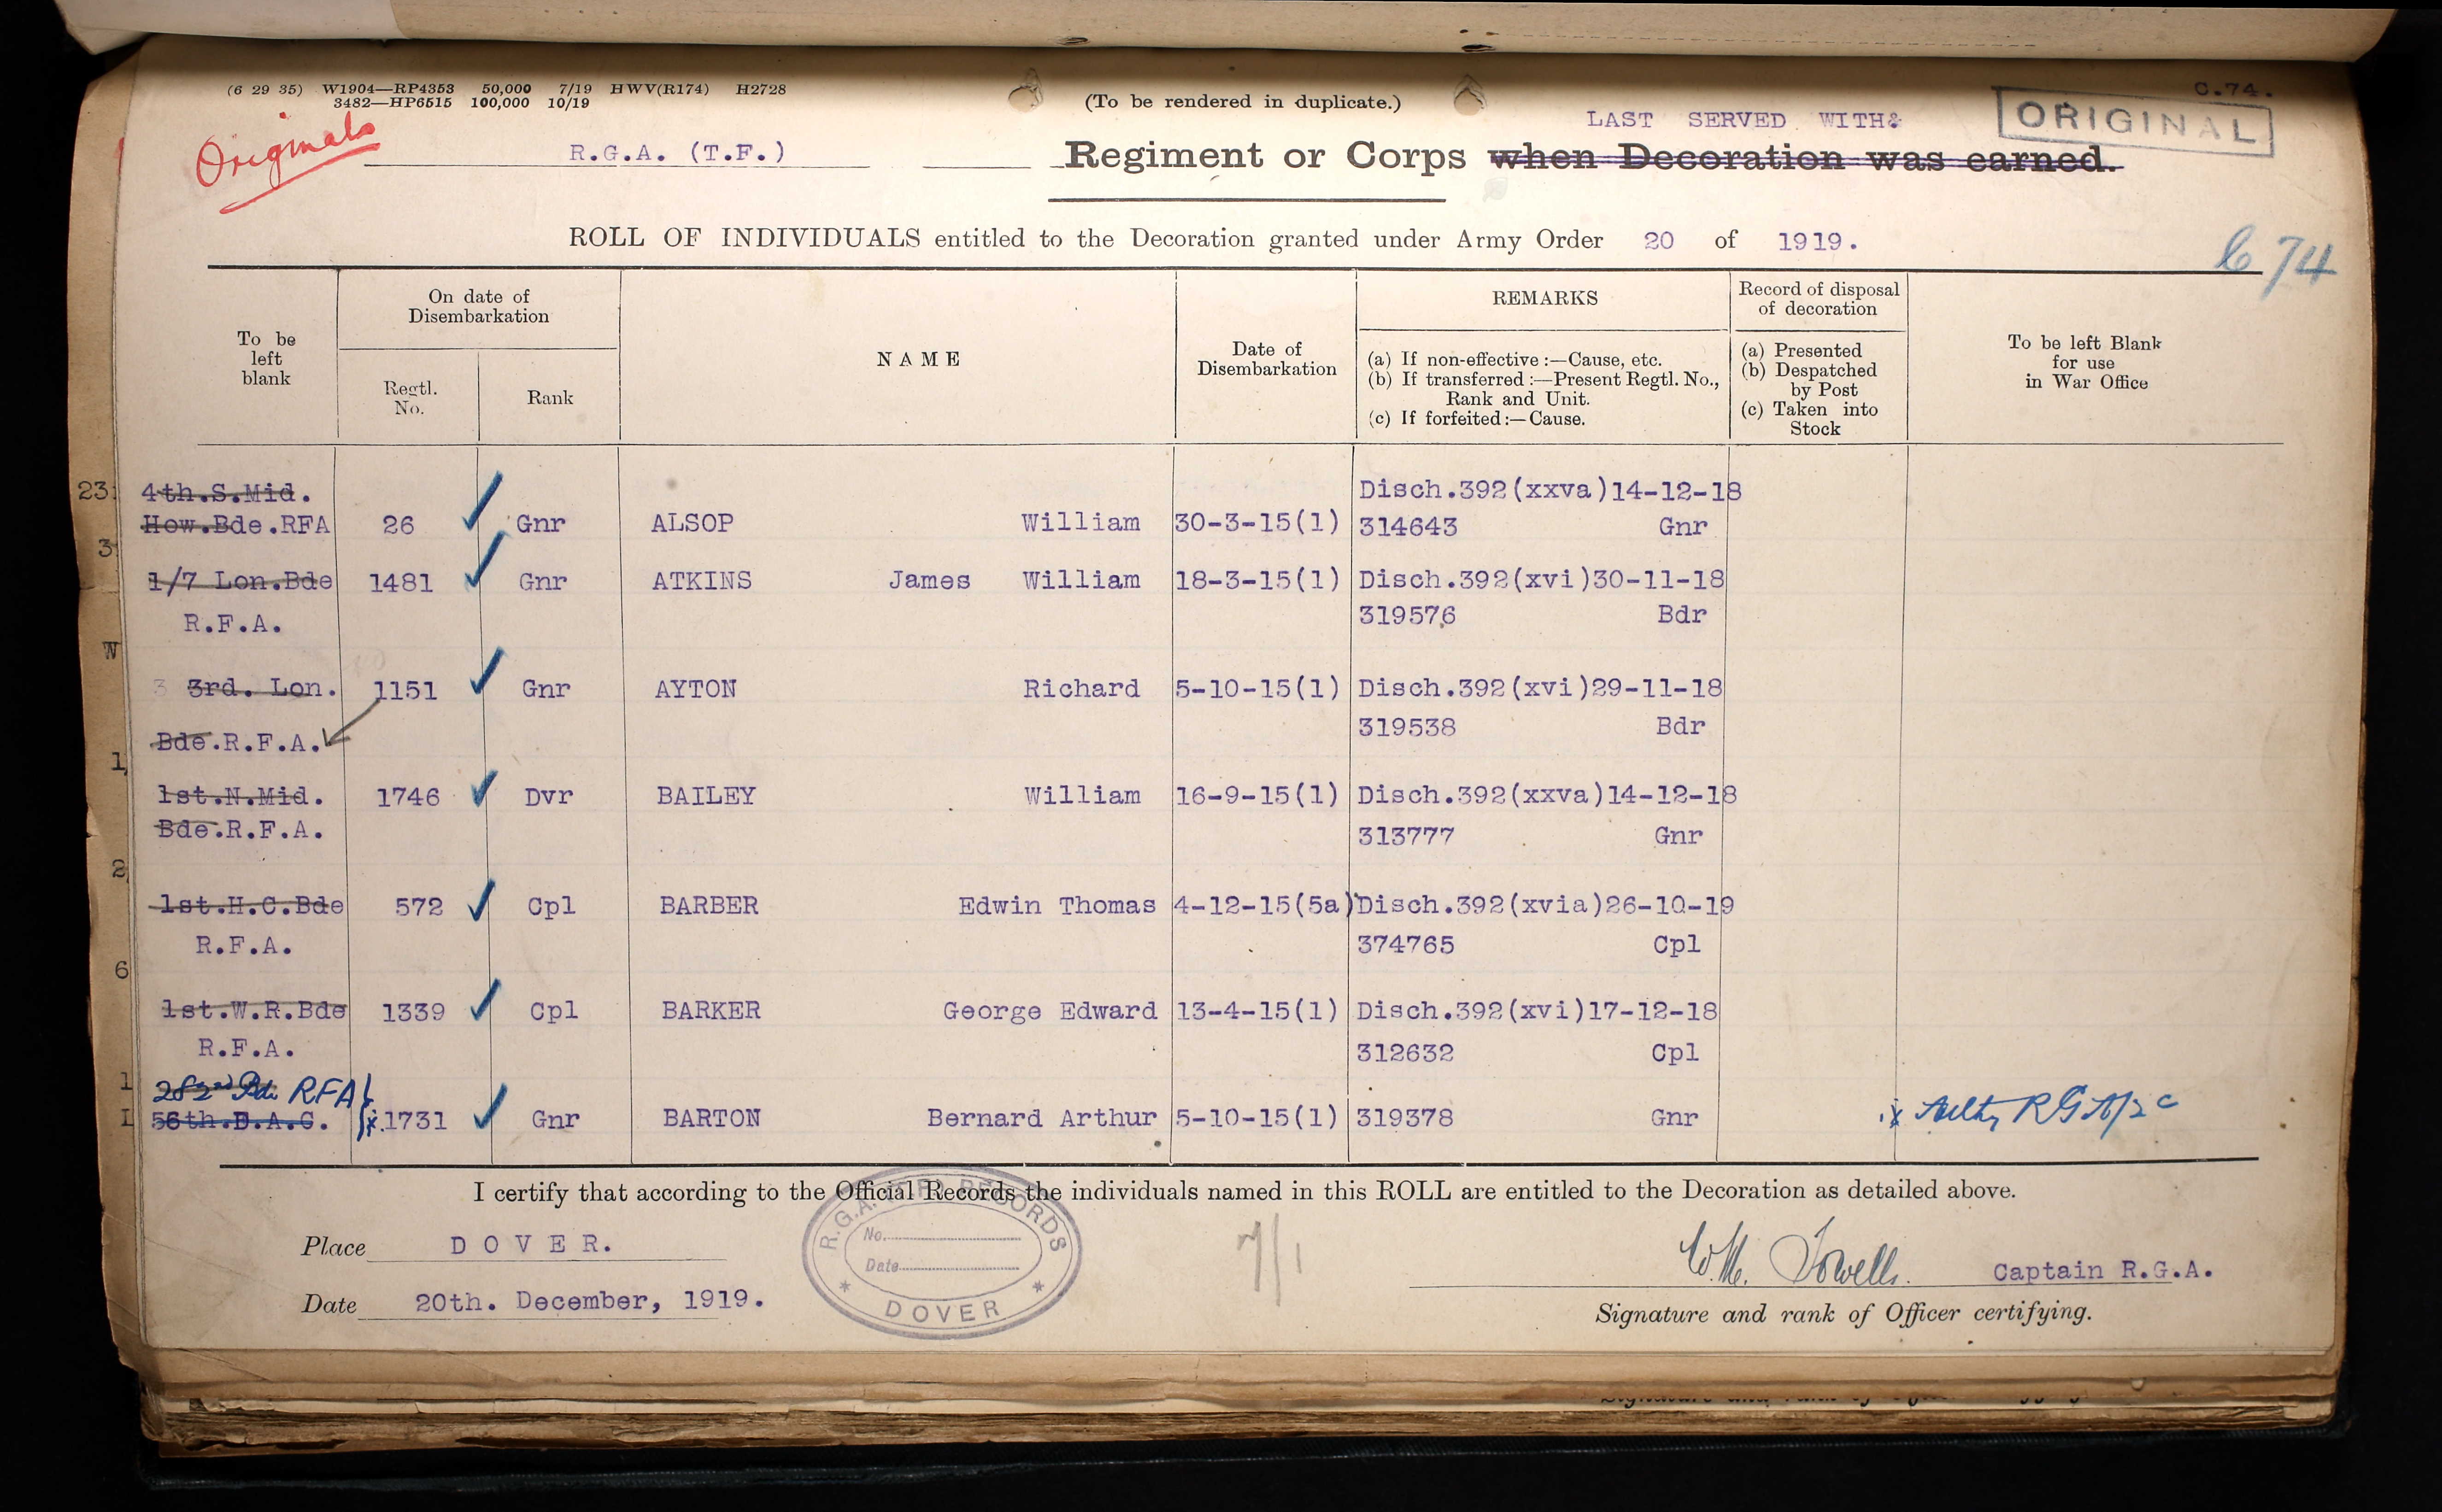 (6 29 35) W1904—RP4353 50,000 7/19 HWV(R174) H2728
3482—HP6515 100,000 10/19
(To be rendered in duplicate.)
C.74.
ORIGINAL
Originals
LAST SERVED WITH:
R.G.A. (T.F.) Regiment or Corps when Decoration was earned.
ROLL OF INDIVIDUALS entitled to the Decoration granted under Army Order 20 of 1919.
C 74
To be left blank
On date of Disembarkation
Regtl. No.
Rank
NAME
Date of Disembarkation
REMARKS
(a) If non-effective :—Cause, etc.
(b) If transferred :—Present Regtl. No.,
Rank and Unit.
(c) If forfeited :—Cause.
Record of disposal of decoration
(a) Presented
(b) Despatched
by Post
(c) Taken into
Stock
To be left Blank
for use
in War Office
23
4th.S.Mid. Disch.392(xxva)14-12-18
How.Bde.RFA 26 Gnr ALSOP William 30-3-15(1) 314643 Gnr
3
1/7 Lon.Bde 1481 Gnr ATKINS James William 18-3-15(1) Disch.392(xvi)30-11-18
R.F.A. 319576 Bdr
W
3 3rd. Lon. 1151 Gnr AYTON Richard 5-10-15(1) Disch.392(xvi)29-11-18
Bde.R.F.A. 319538 Bdr
1
1st.N.Mid. 1746 Dvr BAILEY William 16-9-15(1) Disch.392(xxva)14-12-18
Bde.R.F.A. 313777 Gnr
2
1st.H.C.Bde 572 Cpl BARBER Edwin Thomas 4-12-15(5a) Disch.392(xvia)26-10-19
R.F.A. 374765 Cpl
6
1st.W.R.Bde 1339 Cpl BARKER George Edward 13-4-15(1) Disch.392(xvi)17-12-18
R.F.A. 312632 Cpl
1
282nd Bde RFA
56th.D.A.C. 1731 Gnr BARTON Bernard Arthur 5-10-15(1) 319378 Gnr
I certify that according to the Official Records the individuals named in this ROLL are entitled to the Decoration as detailed above.
R.G.A. RECORDS
No.
Date
DOVER
Place DOVER.
7/1
Captain R.G.A.
Date 20th. December, 1919.
Signature and rank of Officer certifying.